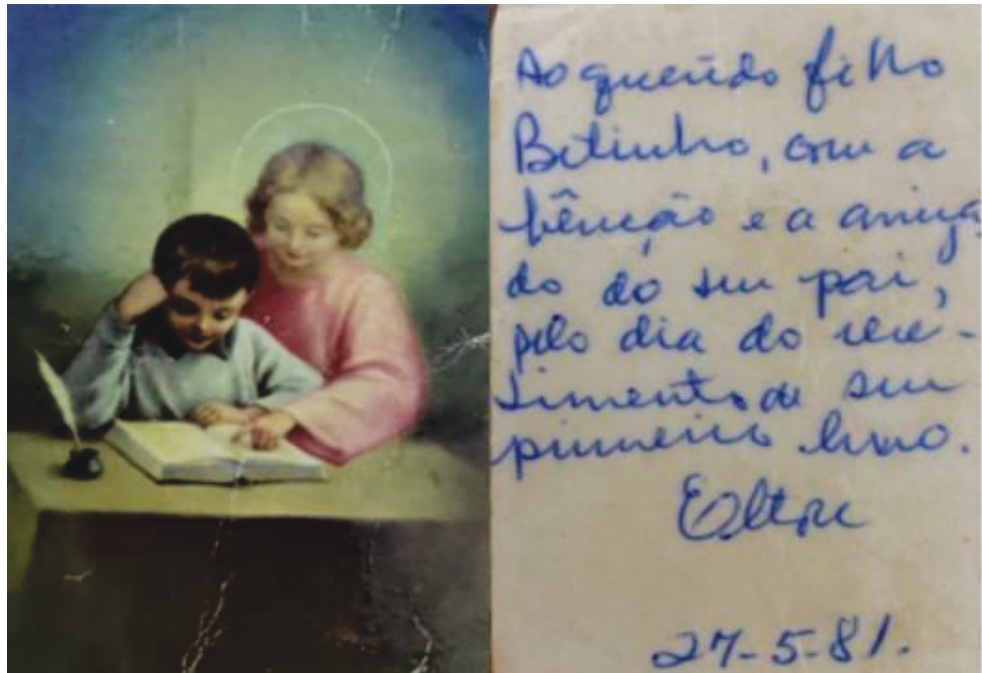 Ao querido filho
Betinho, com a
bênção e a amiza
de do seu pai,
pelo dia do rece-
bimento de seu
primeiro livro.
27-5-81.